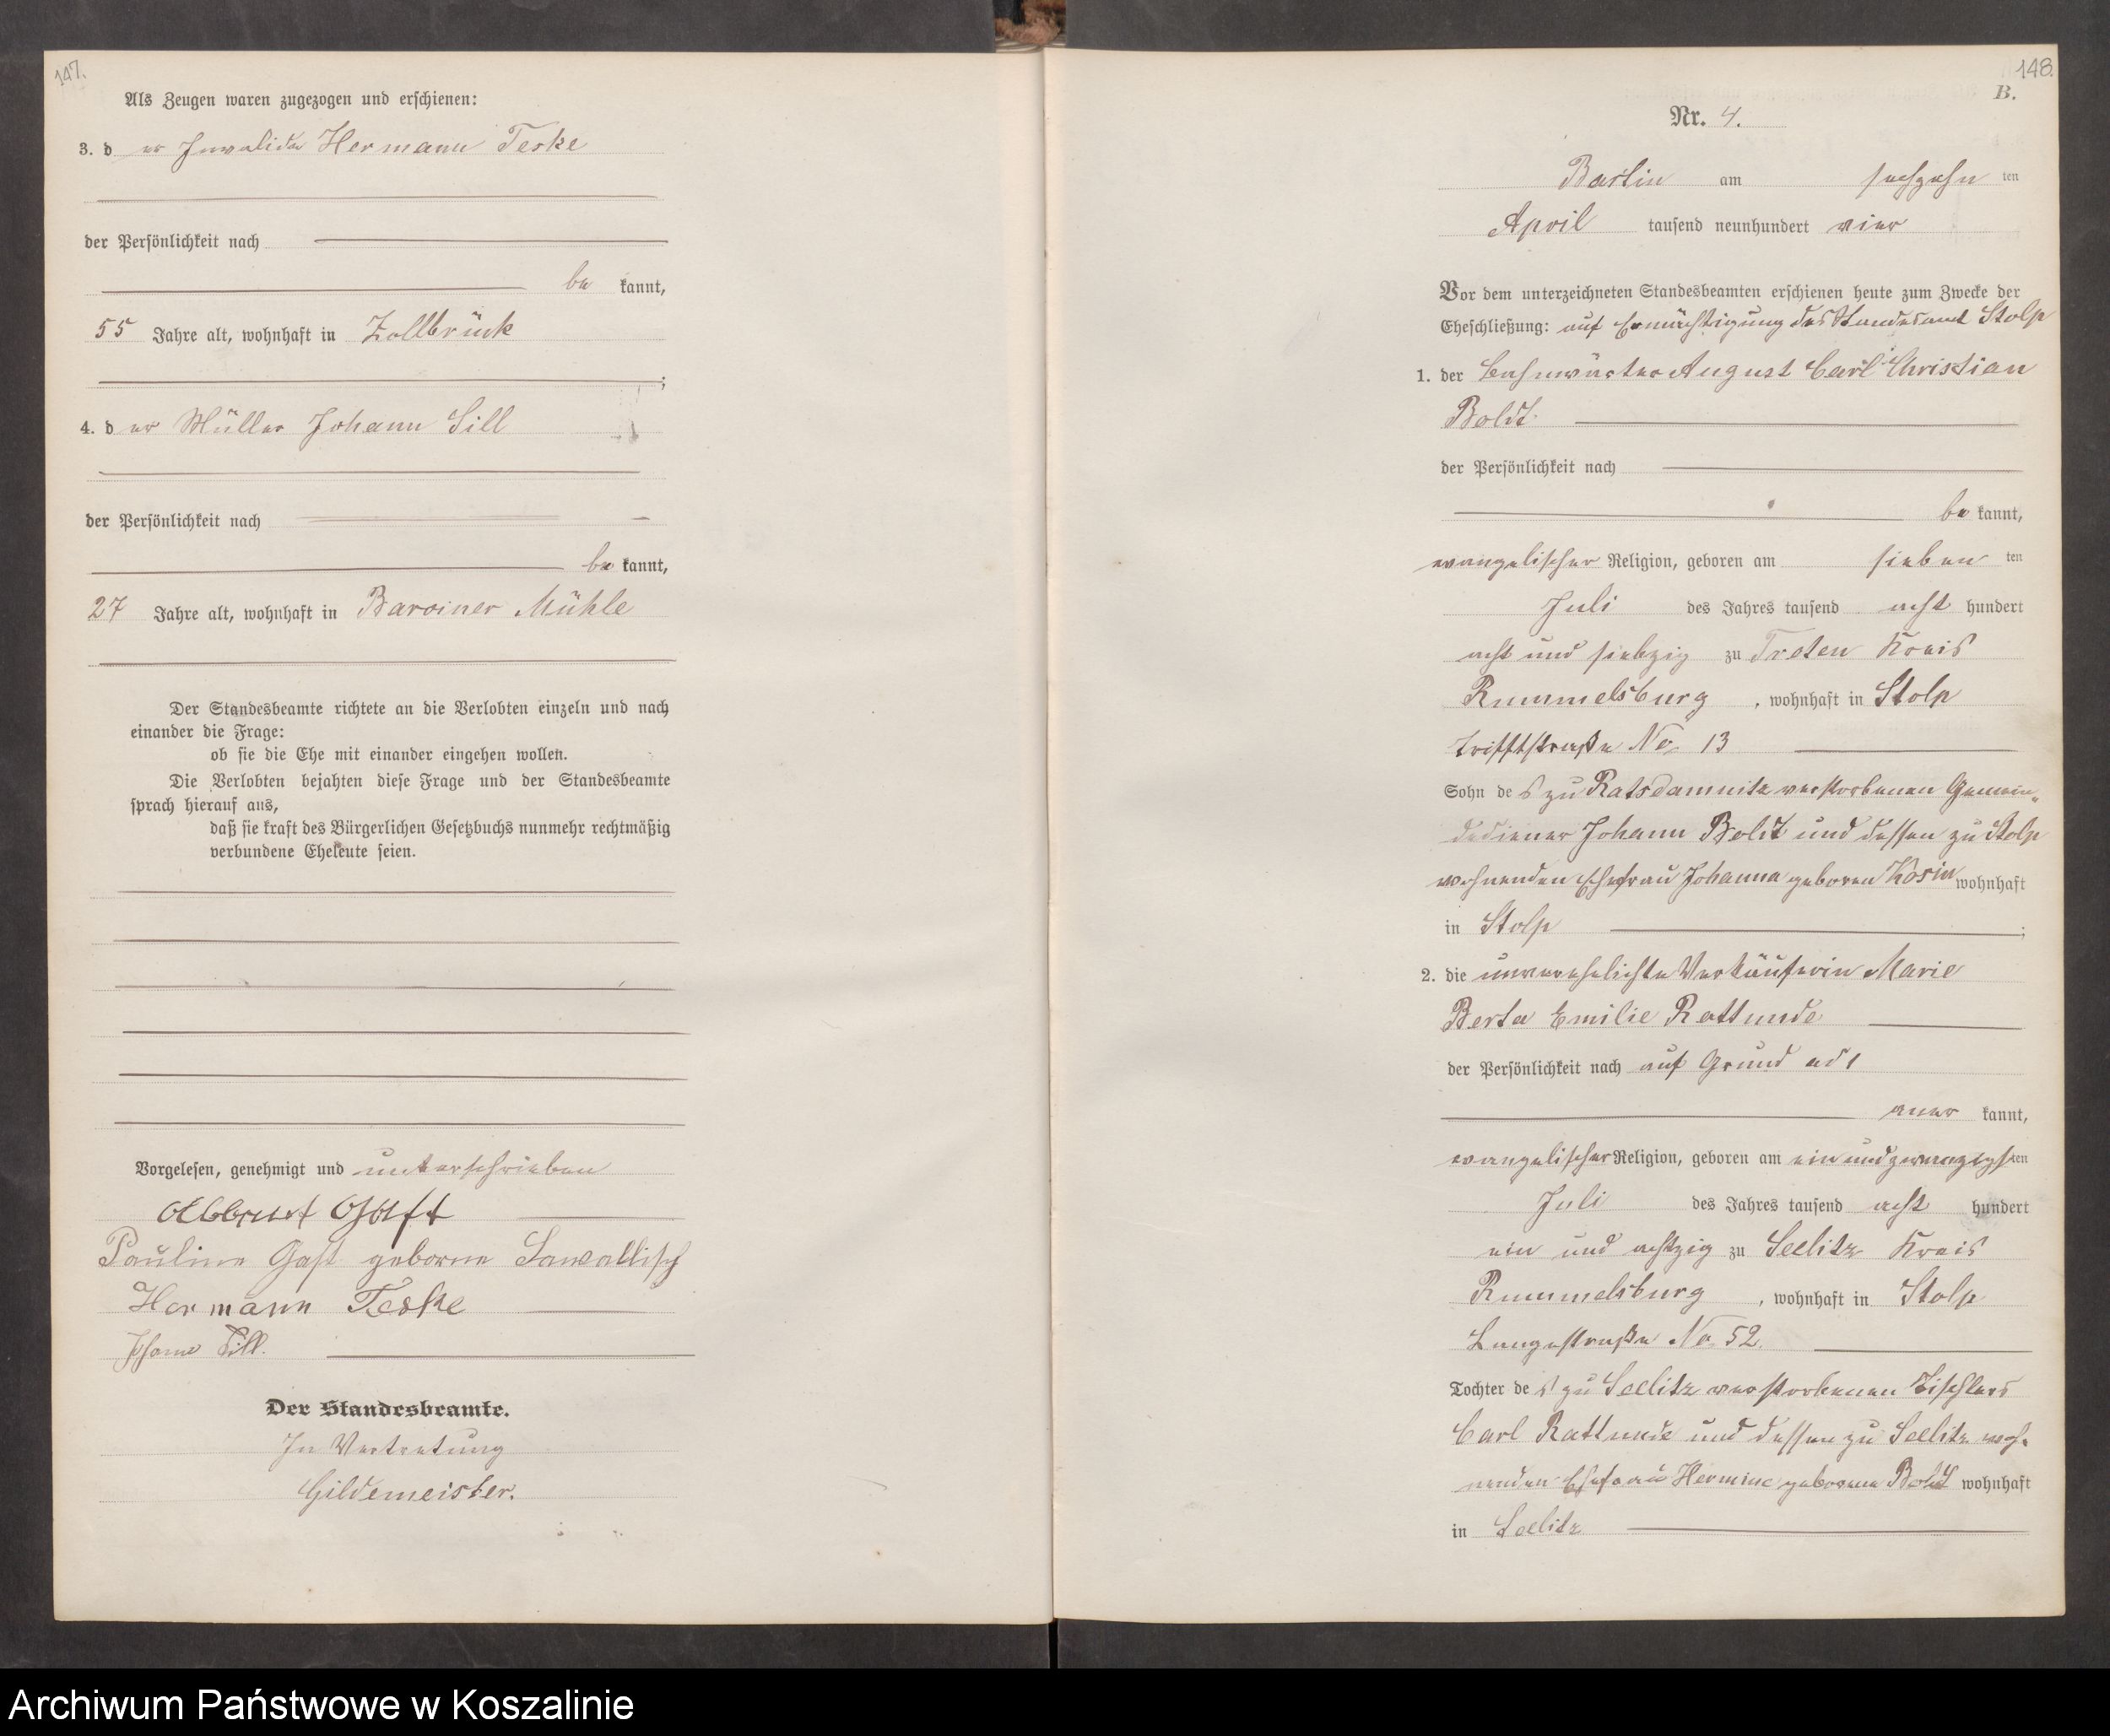 147.
Als Zeugen waren zugezogen und erschienen:
3. d er Invalide Hermann Teske
der Persönlichkeit nach
be kannt,
55 Jahre alt, wohnhaft in Zollbrück
;
4. d er Müller Johann Sill
der Persönlichkeit nach
be kannt,
27 Jahre alt, wohnhaft in Barviner Mühle
Der Standesbeamte richtete an die Verlobten einzeln und nach
einander die Frage:
ob sie die Ehe mit einander eingehen wollen.
Die Verlobten bejahten diese Frage und der Standesbeamte
sprach hierauf aus,
daß sie kraft des Bürgerlichen Gesetzbuchs nunmehr rechtmäßig
verbundene Eheleute seien.
Vorgelesen, genehmigt und unterschrieben
Pauline Gast geborne Lawallisch
Hermann Teske
Johann Sill.
Der Standesbeamte.
In Vertretung
Gildemeister.
148.
B.
Nr. 4.
Bartin am sechzehn ten
April tausend neunhundert vier
Vor dem unterzeichneten Standesbeamten erschienen heute zum Zwecke der
Eheschließung: auf Ermächtigung des Standesamt Stolp
1. der Bahnwärter August Carl Christian
Boldt
der Persönlichkeit nach
be kannt,
evangelischer Religion, geboren am sieben ten
Juli des Jahres tausend acht hundert
acht und siebzig zu Treten Kreis
Rummelsburg , wohnhaft in Stolp
Triftstraße No 13
Sohn de s zu Ratsdamnitz verstorbenen Gemein-
dediener Johann Boldt und dessen zu Stolp
wohnenden Ehefrau Johanna geboren Kosin wohnhaft
in Stolp ;
2. die unverehelichte Verkäuferin Marie
Berta Emilie Rattunde
der Persönlichkeit nach auf Grund ad 1
aner kannt,
evangelischer Religion, geboren am ein und zwanzigsten
Juli des Jahres tausend acht hundert
ein und achtzig zu Seelitz Kreis
Rummelsburg , wohnhaft in Stolp
Langestraße No 52.
Tochter de s zu Seelitz verstorbenen Tischlers
Carl Rattunde und dessen zu Seelitz woh-
nenden Ehefrau Hermine geborene Boldt wohnhaft
in Seelitz
Archiwum Państwowe w Koszalinie